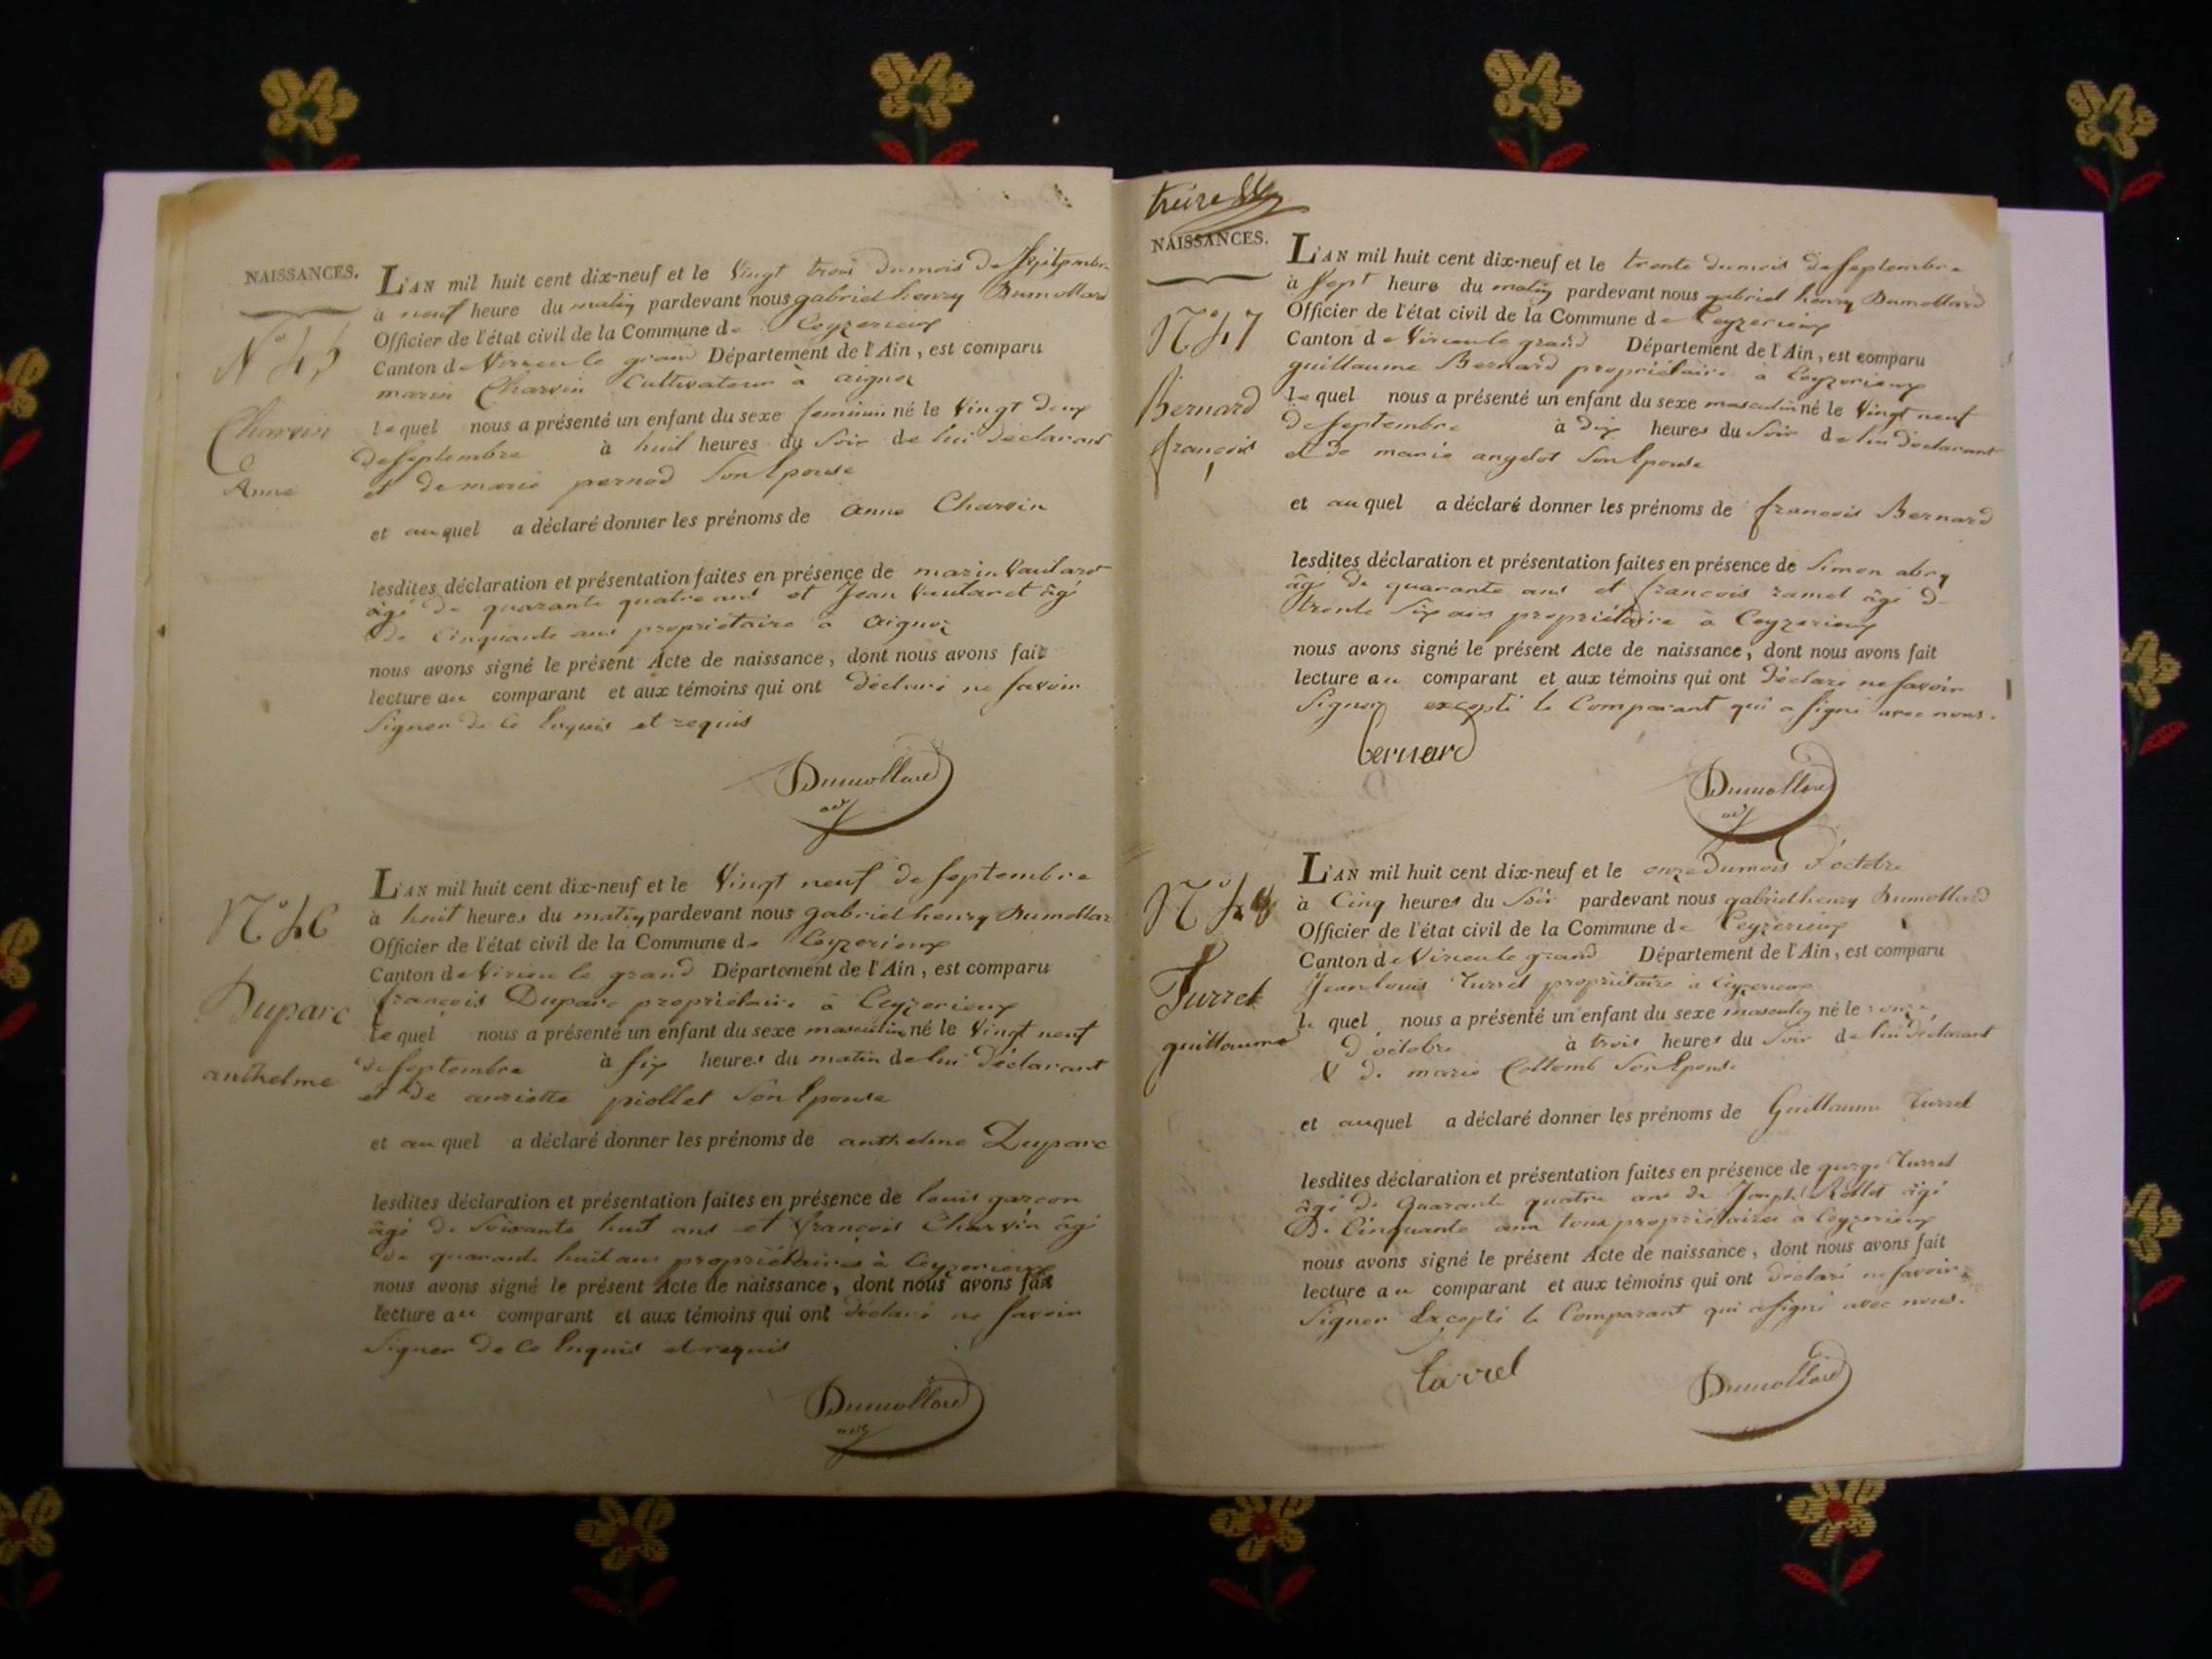 NAISSANCES.
N° 45
Charvin
Anne
L'AN mil huit cent dix-neuf et le Vingt trois dumois de Septembre
à neuf heure du matin pardevant nous gabriel henry Dumollard
Officier de l'état civil de la Commune de Ceyzerieux
Canton de Virieu le grand Département de l'Ain, est comparu
marin Charvin Cultivateur à aignoz
lequel nous a présenté un enfant du sexe feminin né le Vingt deux
de septembre à huit heures du Soir de lui déclarant
et de marie pernod Son Epouse
et auquel a déclaré donner les prénoms de anne Charvin
lesdites déclaration et présentation faites en présence de marin Vautaret
âgé de quarante quatre ans et Jean Vautaret âgé
de Cinquante ans propriétaire a aignoz
nous avons signé le présent Acte de naissance, dont nous avons fait
lecture au comparant et aux témoins qui ont déclaré ne savoir
Signer de ce Enquis et requis
Dumollard
adj
N° 46
Duparc
anthelme
L'AN mil huit cent dix-neuf et le Vingt neuf de septembre
à huit heures du matin pardevant nous gabriel henry Dumollar
Officier de l'état civil de la Commune de Ceyzerieux
Canton de Virieu le grand Département de l'Ain, est comparu
françois Duparc propriétaire à Ceyzerieux
lequel nous a présenté un enfant du sexe masculin né le Vingt neuf
de septembre à six heures du matin de lui déclarant
et de anriette piollet Son Epouse
et auquel a déclaré donner les prénoms de anthelme Duparc
lesdites déclaration et présentation faites en présence de louis garcon
âgé de Soixante huit ans et françois Charvin âgé
de quarante huit ans propriétaires à Ceyzerieux
nous avons signé le présent Acte de naissance, dont nous avons fait
lecture au comparant et aux témoins qui ont déclaré ne savoir
Signer de ce Enquis et requis
Dumollard
adj
treize
NAISSANCES.
N° 47
Bernard
françois
L'AN mil huit cent dix-neuf et le trente dumois de septembre
à sept heure du matin pardevant nous gabriel henry Dumollard
Officier de l'état civil de la Commune de Ceyzerieux
Canton de Virieu le grand Département de l'Ain, est comparu
guillaume Bernard propriétaire a Ceyzerieux
lequel nous a présenté un enfant du sexe masculin né le Vingt neuf
de septembre à dix heures du Soir de lui déclarant
et de marie angelot Son Epouse
et auquel a déclaré donner les prénoms de françois Bernard
lesdites déclaration et présentation faites en présence de Simon abry
âgé de quarante ans et françois ramel âgé de
trente Six ans propriétaire à Ceyzerieux
nous avons signé le présent Acte de naissance, dont nous avons fait
lecture au comparant et aux témoins qui ont déclaré ne savoir
Signer excepté le Comparant qui a signé avec nous.
bernard
Dumollard
adj
N° 48
Turrel
guillaume
L'AN mil huit cent dix-neuf et le onze dumois d'octobre
à Cinq heures du Soir pardevant nous gabriel henry Dumollard
Officier de l'état civil de la Commune de Ceyzerieux
Canton de Virieu le grand Département de l'Ain, est comparu
Jean louis turrel propriétaire a Ceyzerieux
le quel nous a présenté un enfant du sexe masculin né le onze
d'octobre à trois heures du Soir de lui déclarant
& de marie Collomb Son Epouse
et auquel a déclaré donner les prénoms de Guillaume turrel
lesdites déclaration et présentation faites en présence de george turrel
âgé de Quarante quatre ans de Joseph Rollet âgé
De Cinquante ans tous propriétaires a Ceyzerieux
nous avons signé le présent Acte de naissance, dont nous avons fait
lecture au comparant et aux témoins qui ont déclaré ne savoir
Signer Excepté le Comparant qui a signé avec nous.
turrel
Dumollard